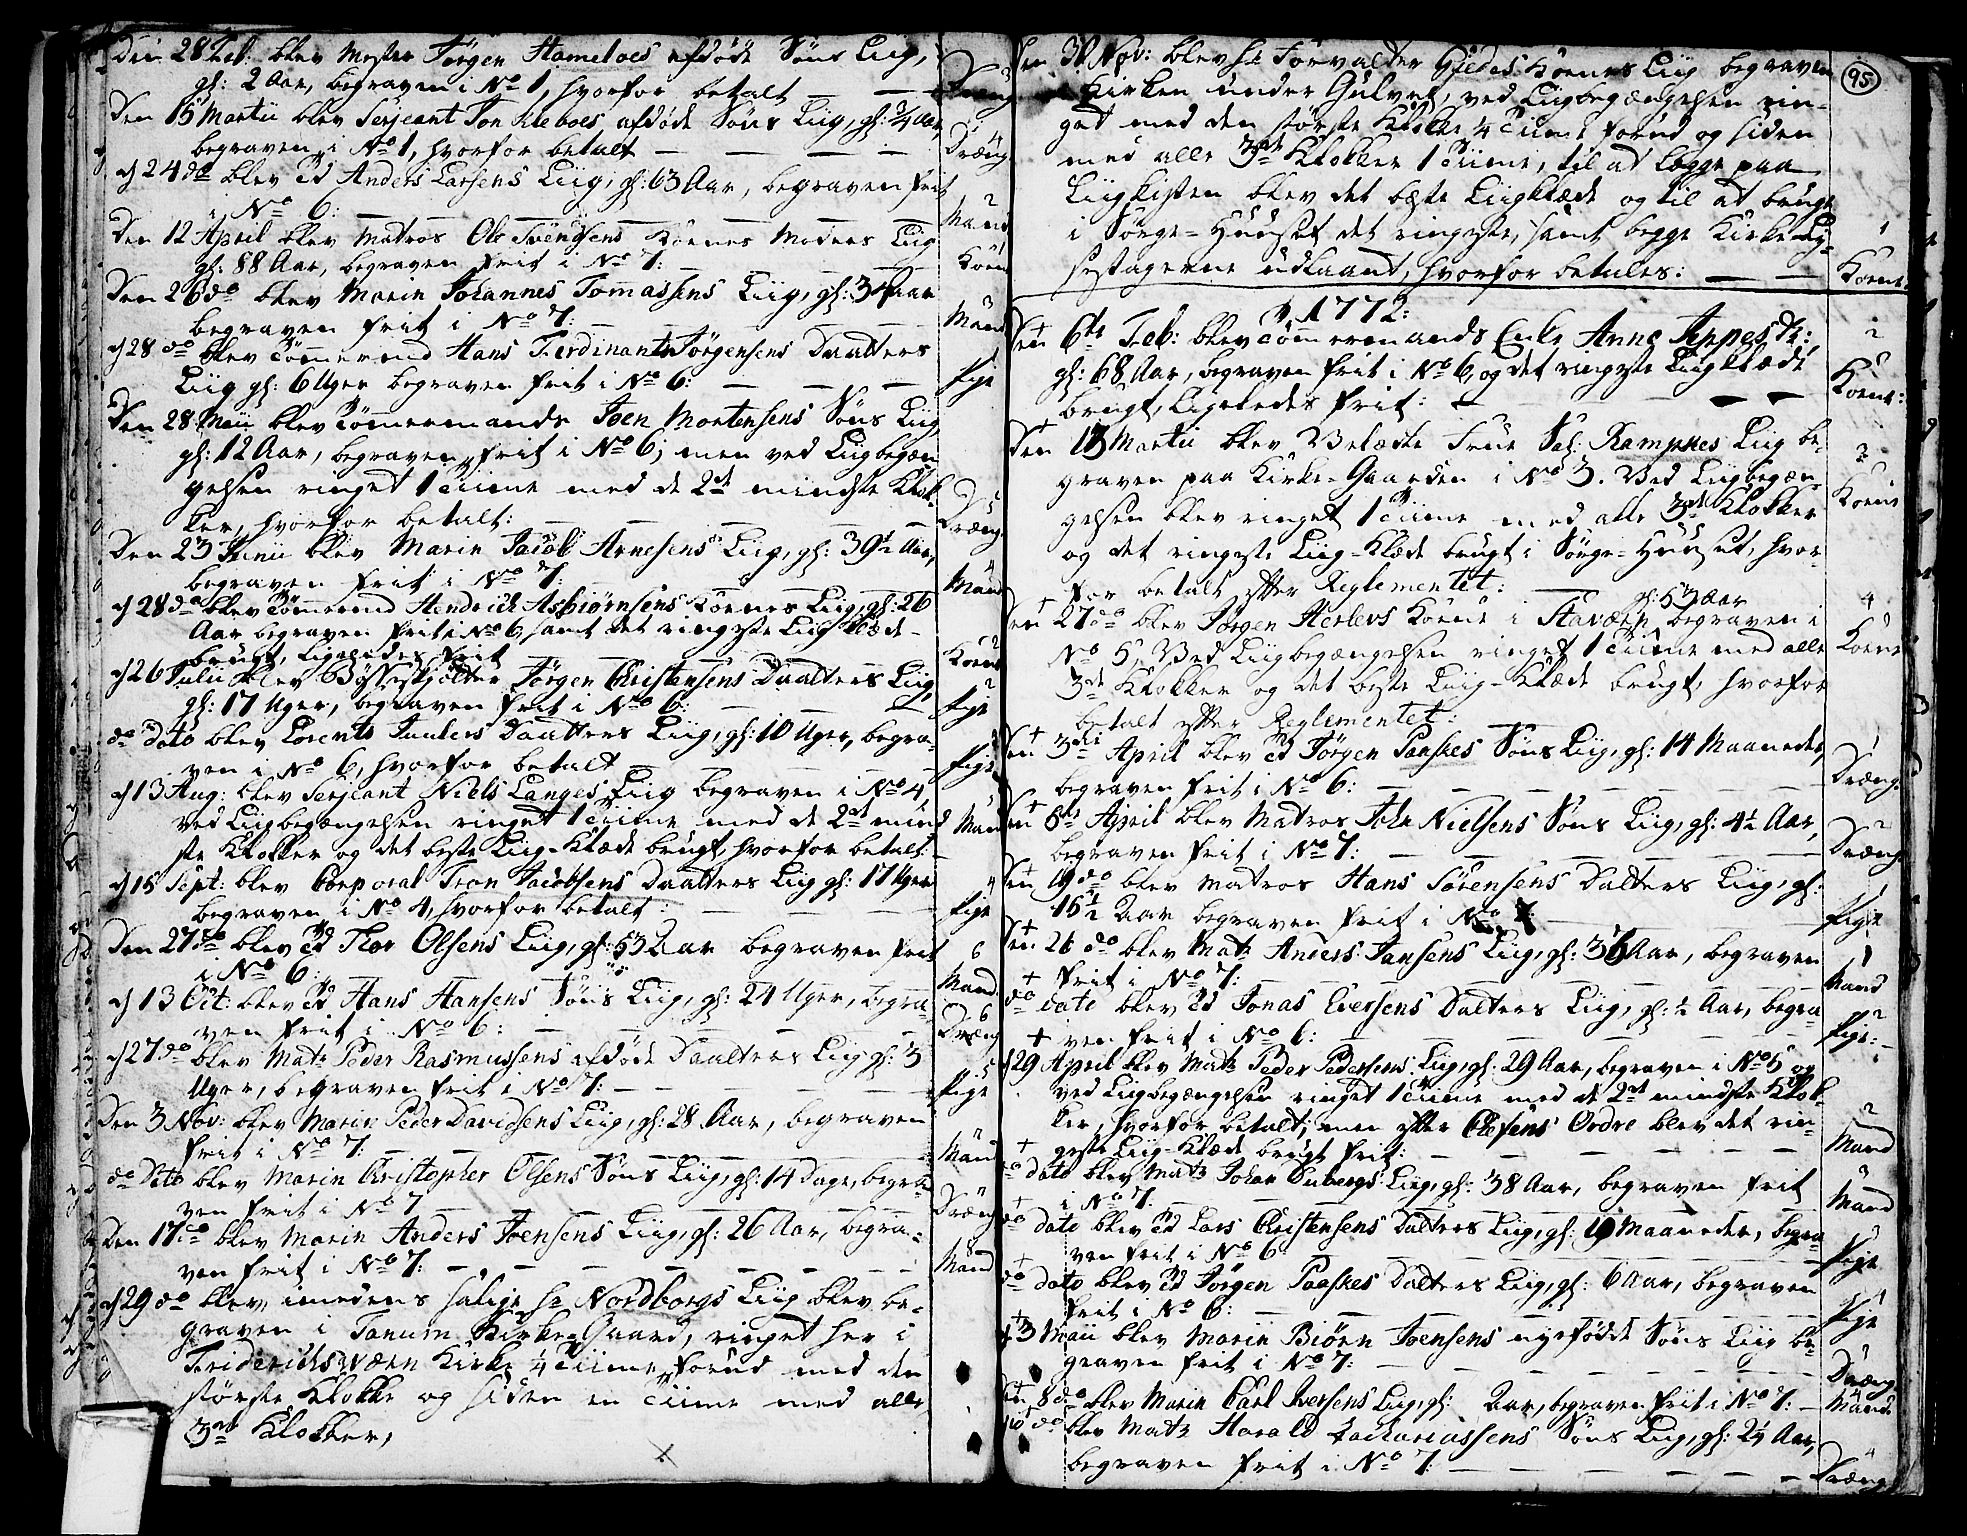 Den 28 Feb: blev Mester Jørgen Hameloes afdöde Söns Liig,
gl: 2 Aar, begraven i No 1, hvorfor betalt
Den 15 Martii blev Serjeant Jon Kleboes afdöde Söns Liig, gl: 3/4 Aar
begraven i No 1, hvorfor betalt
Dræng
d 24 do blev Anders Larsens Liig, gl: 63 Aar, begraven frit
i No 6:
2
Mand
Den 12 April blev Matros Ole Svendsens Koenes Moders Liig
gl: 88 Aar, begraven frit i No 7:
Koene
Den 26 do blev Marin Johannes Tomassens Liig, gl: 34 Aar
begraven frit i No 7:
3
Mand
d 28 do blev Tömermd Hans Ferdinant Jørgensens Daatters
Liig gl: 6 Uger begraven frit i No 6:
1
Pige
Den 28 Maii blev Tömermands Joen Mortensens Söns Liig,
gl: 12 Aar, begraven frit i No 6; men ved Liigbegæn-
gelsen ringet 1 Tiime med de 2de mindste Klok-
ker, hvorfor betalt:
Dræng
Den 23 Junii blev Marin Jacob Arnesens Liig, gl: 39 1/2 Aar,
begraven frit i No 7:
4
Mand
d 28 do blev Tömermd Hendrich Asbiörnsens Koenes Liig, gl: 26
Aar begraven frit i No 6, samt det ringeste Liig-Klæde
brugt, ligeledes frit
2
Koene
d 26 Julii blev Bösseskjelter Jørgen Christensens Daatters Liig
gl: 17 Uger, begraven frit i No 6:
2
Pige
do dato blev Lorents Junlers Daatters Liig, gl: 10 Uger, begra-
ven i No 6, hvorfor betalt
Pige
d 13 Aug: blev Serjeant Niels Langes Liig begraven i No 4
ved Liigbegængelsen ringet 1 Tiime med de 2de mind-
ste Klokker og det beste Liig-Klæde brugt, hvorfor betalt:
Mand
d 15 Sept: blev Corporal Tron Jacobsens Daatters Liig gl: 17 Uger
begraven i No 4, hvorfor betalt:
4
Pige
Den 27 do blev Thor Olsens Liig, gl: 53 Aar begraven frit
i No 6:
6
Mand
d 13 Oct: blev Hans Hansens Söns Liig, gl: 24 Uger, begra-
ven frit i No 6:
6
Dræng
d 27 do blev Mats Peder Rasmussens afdöde Daatters Liig, gl: 3
Uger, begraven frit i No 7:
5
Pige
Den 3 Nov: blev Marin Peder Davidsens Liig, gl: 28 Aar, begraven
frit i No 7:
Mand
do Dato blev Marin Christopher Olsens Söns Liig, gl: 14 Dage, begra-
ven frit i No 7
Dræng
Den 17 do blev Marin Anders Joensens Liig, gl: 26 Aar, begra-
ven frit i No 7:
Mand
d 29 do blev, imedens salige Hr Nordborgs Liig blev be-
graven i Tanum Kirke-Gaard, ringet her i
Friderichswærn Kirke 1/4 Tiime forud med den
störste Klokke og siden en Tiime med alle
3de Klokker,
95
Den 30 Nov: blev Hr Forvalter Gjedes Koenes Liig begraven
i Kirken under Gulvet, ved Liigbegængelsen rin-
get med den störste Klokke 1/4 Tiime forud og siden
med alle 3de Klokker 1 Tiime, til at legge paa
Liigkisten blev det beste Liigklæde og til at bruge
i Sörge-Huuset det ringeste, samt begge Kirke-Lig-
sestagerne udlaant, hvorfor betales:
1
Koene
1772:
Den 6te Feb: blev Tömermands Enke Anne Jeppesdr:
gl: 68 Aar, begraven frit i No 6, og det ringeste Liigklæde
brugt, ligeledes frit:
2
Koene:
Den 13 Martii blev Velædle Frue Sal: Rampkes Liig be-
graven paa Kirke-Gaarden i No 3. Ved Liigbegæn-
gelsen blev ringet 1 Tiime med alle 3de Klokker
og det ringeste Liig-Klæde brugt i Sörge-Huuset, hvor-
for betalt efter Reglementet:
3
Koene
gl: 53 Aar
Den 27 do blev Jørgen Herlevs Koene i Stavern begraven i
No 5. Ved Liigbegængelsen ringet 1 Tiime med alle
3de Klokker og det beste Liig-Klæde brugt, hvorfor
betalt efter Reglementet:
4
Koene
Den 3die April blev Jørgen Paaskes Söns Liig, gl: 14 Maaneder,
begraven frit i No 6:
1
Dræng
Den 8de April blev Matros Johs Nielsens Söns Liig, gl: 4 1/2 Aar,
begraven frit i No 7:
2
Dræng
Den 19 do blev Matros Hans Sörensens Dalters Liig, gl:
16 1/2 Aar begraven frit i No 7:
1
Pige
Den 26 do blev Mats Anders Jansens Liig, gl: 36 Aar, begraven
frit i No 7:
1
Mand
do dato blev Jonas Eversens Dalters Liig, gl: 1/2 Aar, begra-
ven frit i No 6:
2
Pige:
d 29 April blev Mats Peder Pedersens Liig, gl: 29 Aar, begraven i No 5 og
ved Liigbegængelsen ringet 1 Tiime med de 2de mindste Klok-
ker, hvorfor betalt; men efter Chefens Ordre blev det rin-
geste Liig-Klæde brugt frit:
2
Mand
do dato blev Mats Johan Subergs Liig, gl: 38 Aar, begraven frit
i No 7:
3
Mand
do dato blev Lars Christensens Dalters Liig, gl: 19 Maaneder, begra-
ven frit i No 6
3
Pige
do dato blev Jørgen Paaskes Dalters Liig, gl: 6 Aar, begraven
frit i No 6:
4
Pige
d 3 Maii blev Marin Biörn Joensens nyefödde Söns Liig be-
graven frit i No 7:
3
Dræng
Den 8 do blev Marin Carl Iversens Liig, gl: Aar, begraven frit i No 7:
4
Mand
10 do blev Mats Harald Zachariassens Söns Liig, gl: 2 1/2 Aar,
begraven frit i No 7
4
Dræng